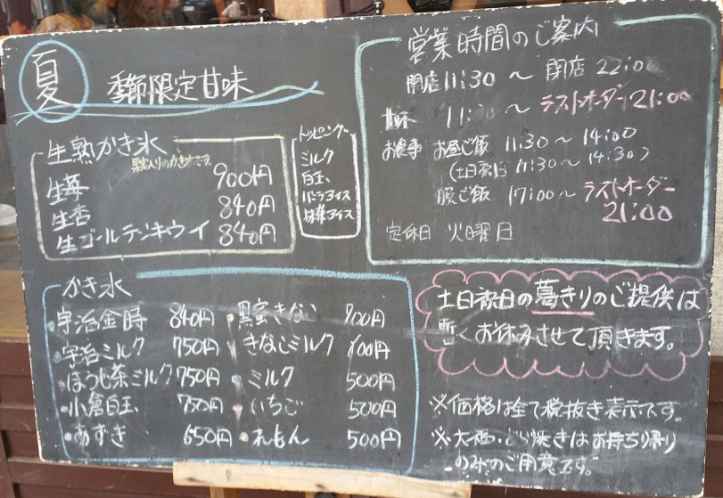 夏 季節限定甘味
生熟かき氷
果実入りのかき氷です
生苺 900円
生杏 840円
生ゴールデンキウイ 840円
トッピング
ミルク
白玉
バニラアイス
抹茶アイス
かき氷
宇治金時 840円
宇治ミルク 750円
ほうじ茶ミルク 750円
小倉白玉 750円
あずき 650円
黒蜜きなこ 700円
きなこミルク 700円
ミルク 500円
いちご 500円
れもん 500円
営業時間のご案内
開店11:30 ~ 閉店 22:00
甘味 11:30 ~ ラストオーダー21:00
お食事 お昼ご飯 11:30 ~ 14:00
(土日祝日 11:30 ~ 14:30)
晩ご飯 17:00 ~ ラストオーダー
21:00
定休日 火曜日
土日祝日の葛きりのご提供は
暫くお休みさせて頂きます。
※価格は全て税抜き表示です。
※大福・どら焼きはお持ち帰り
のみのご用意です。